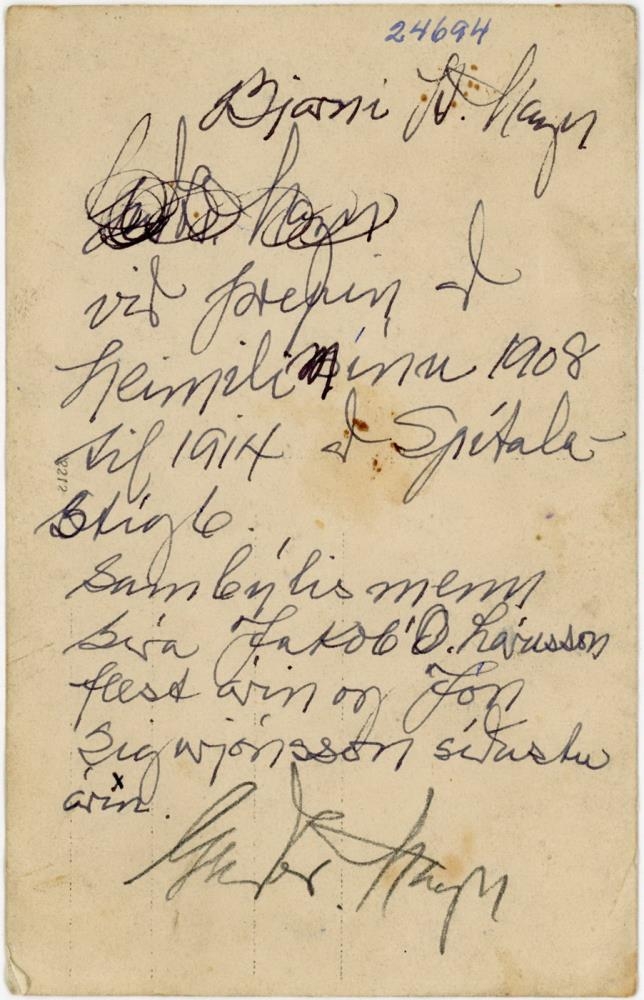 24694
Bjarni Þ. Magn
við þrepin á
heimili mínu 1908
til 1914 á Spítala-
Stíg 6.
Sambýlismenn
Síra Jakob Ó. Lárusson
flest árin og Jón
Sigurjónsson síðustu
árin x
Guðbr. Magn
2212